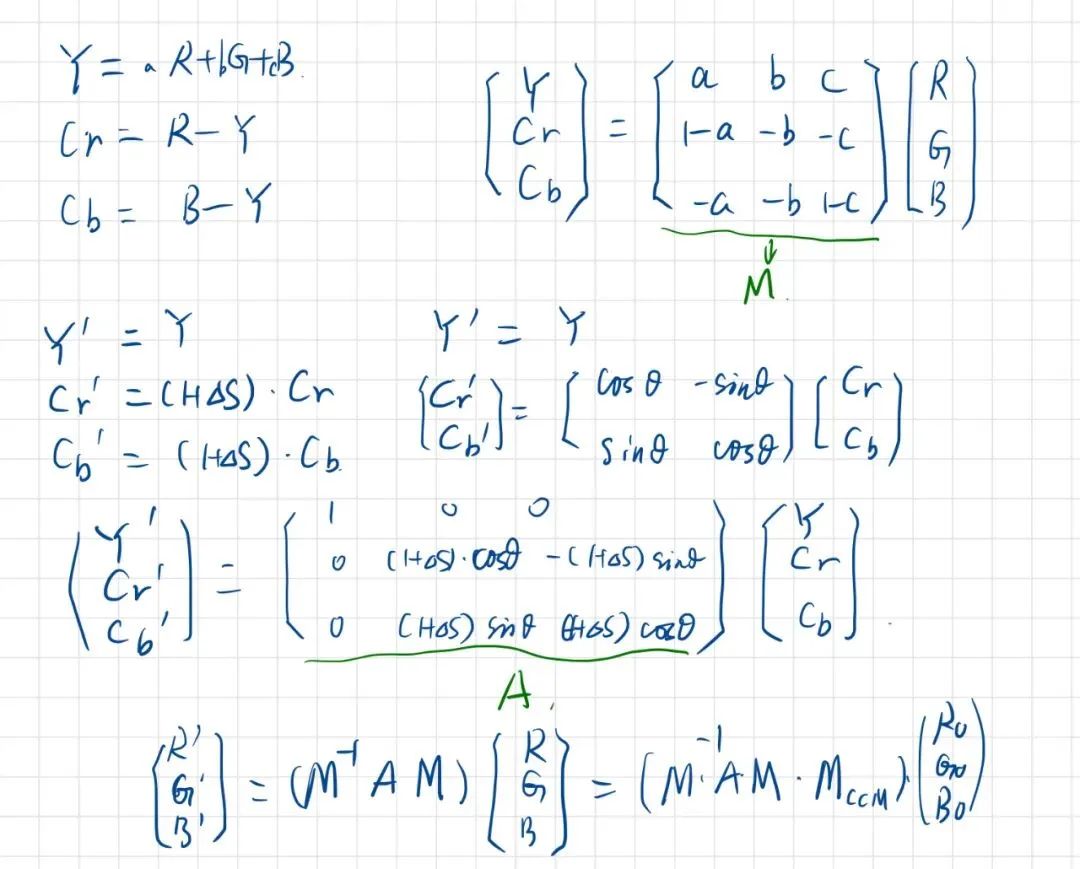 Y = aR+bG+cB.
Cr = R-Y
Cb = B-Y
[Y Cr Cb] = [a b c; 1-a -b -c; -a -b 1-c] [R G B]
M.
Y' = Y
Cr' = (1+ΔS)·Cr
Cb' = (1+ΔS)·Cb.
Y' = Y
[Cr' Cb'] = [cosθ -sinθ; sinθ cosθ] [Cr Cb]
[Y' Cr' Cb'] = [1 0 0; 0 (1+ΔS)·cosθ -(1+ΔS)sinθ; 0 (1+ΔS)sinθ (1+ΔS)cosθ] [Y Cr Cb].
A.
[R' G' B'] = (M⁻¹AM) [R G B] = (M⁻¹·AM·M_CCM)·[R0 G0 B0]